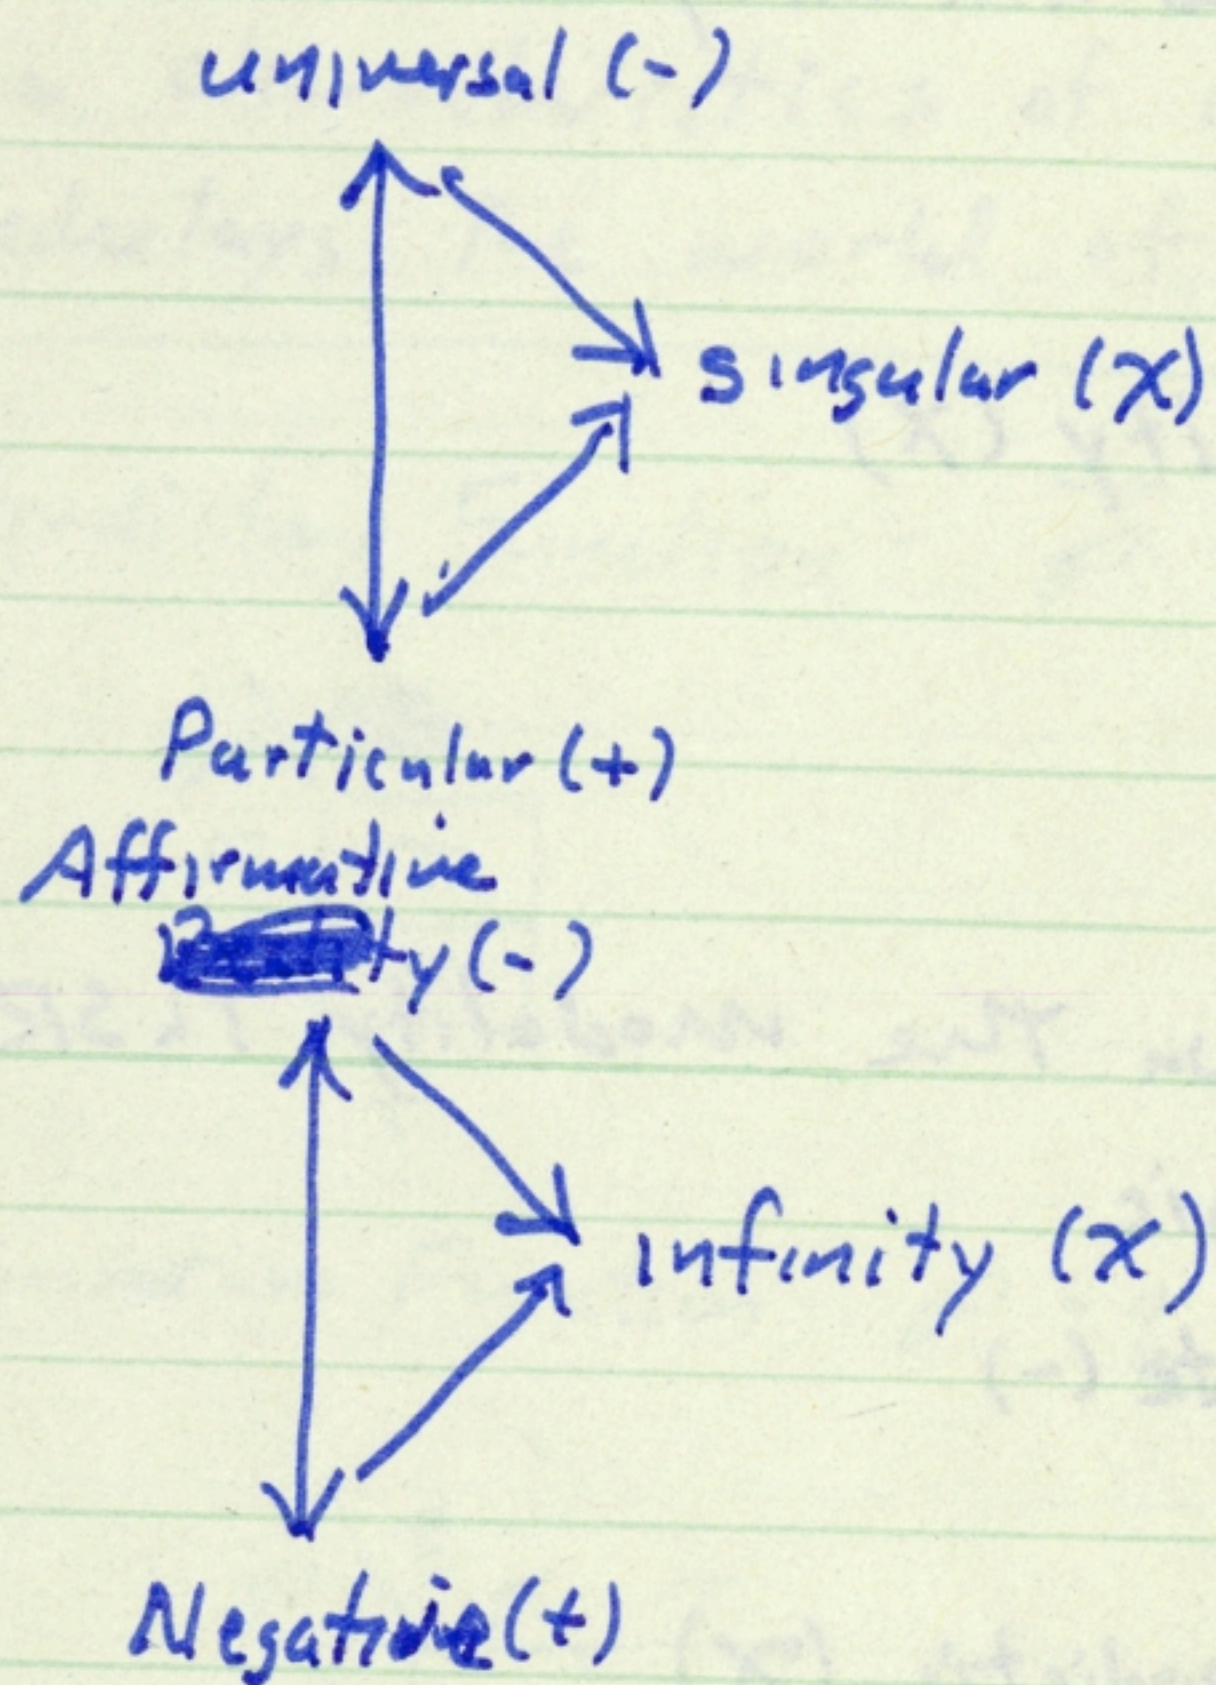 universal (-)
singular (x)
Particular (+)
Affirmative
ty (-)
infinity (x)
Negative (+)